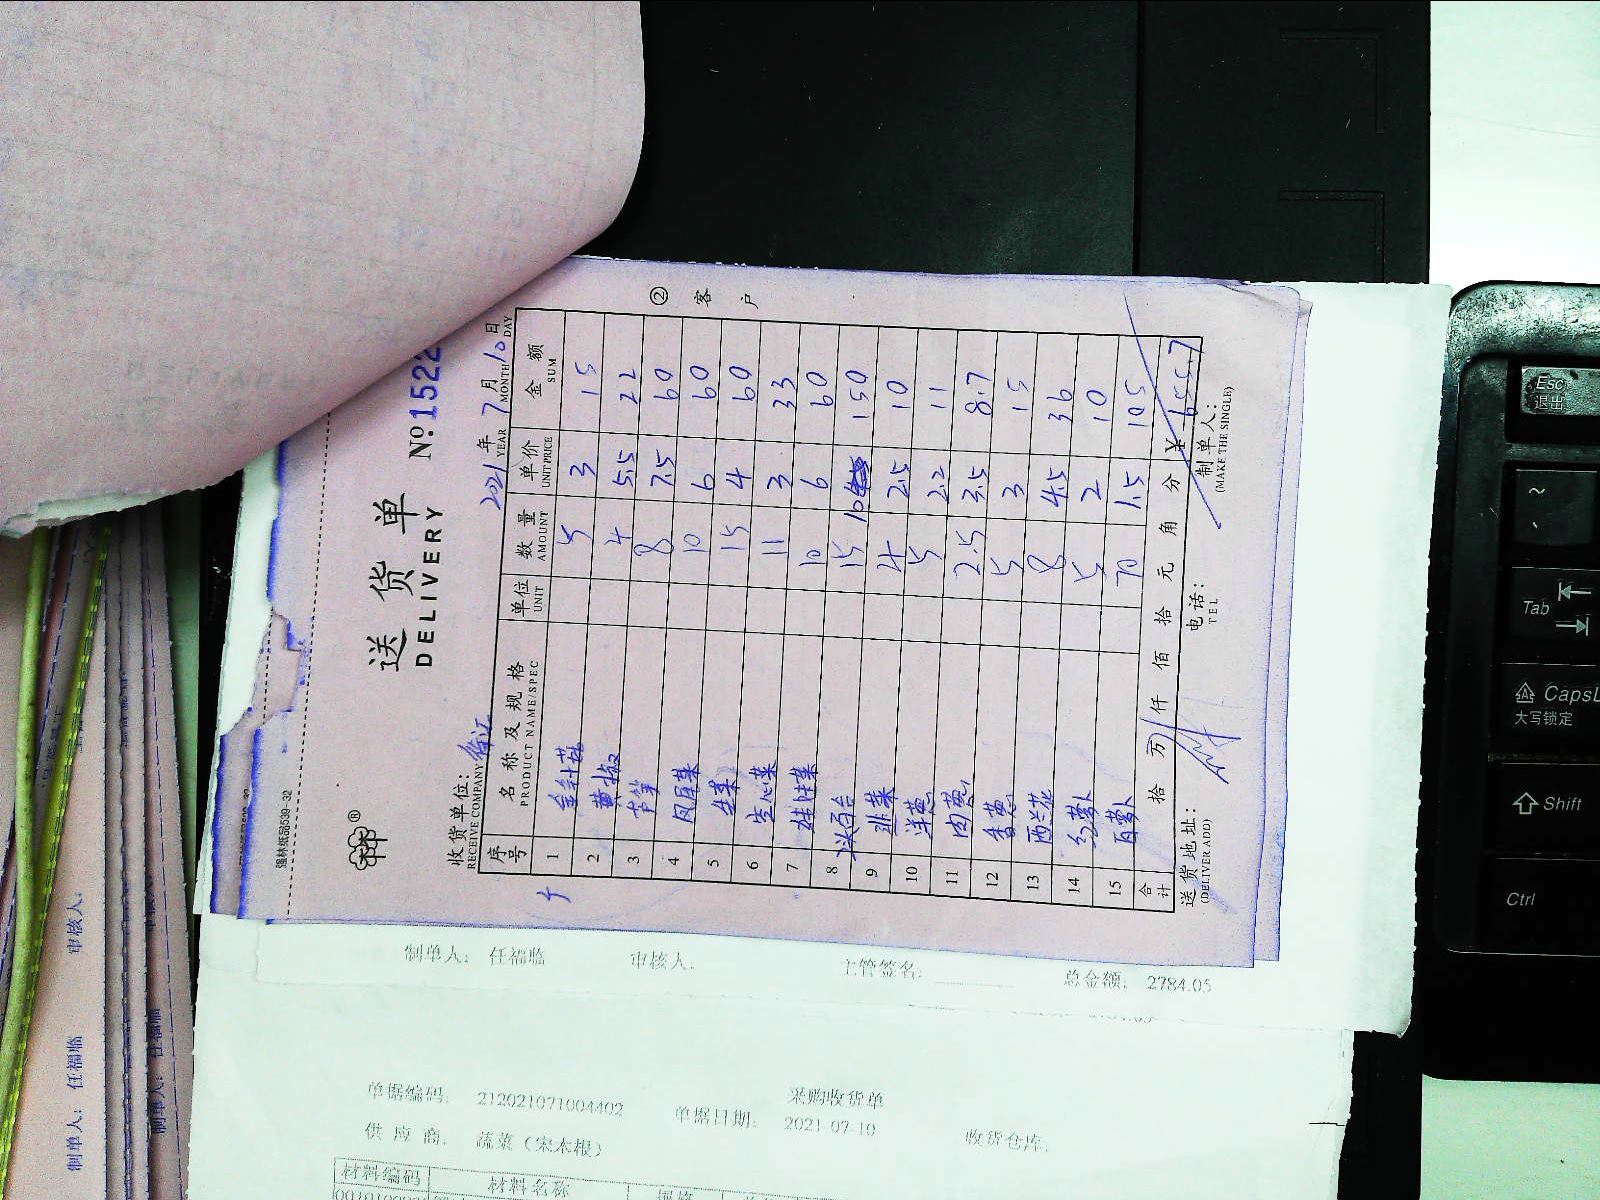 送 货 单
DELIVERY
№ 1522
收货单位：
RECEIVE COMPANY
2021 年 7 月 10 日
YEAR MONTH DAY
序号 名称及规格 单位 数量 单价 金额
PRODUCT NAME/SPEC UNIT AMOUNT UNIT PRICE SUM
1 金针菇 5 3 15
2 黄椒 4 5.5 22
3 芦笋 8 7.5 60
4 凤尾菜 10 6 60
5 生菜 15 4 60
6 空心菜 11 3 33
7 娃娃菜 10 6 60
8 15 10 150
9 韭菜 4 2.5 10
10 洋葱 5 2.2 11
11 肉葱 2.5 3.5 8.7
12 香葱 5 3 15
13 西兰花 8 4.5 36
14 红萝卜 5 2 10
15 白萝卜 70 1.5 105
合计 拾 万 仟 佰 拾 元 角 分 ¥ 655.7
送货地址：
(DELIVER ADD)
电话：
TEL
制单人：
(MAKE THE SINGLE)
② 客 户
制单人： 任福临 审核人： 主管签名： 总金额： 2784.05
采购收货单
单据编码： 212021071004402 单据日期： 2021-07-10 收货仓库：
供 应 商： 蔬菜（宋木根）
材料编码 材料名称 规格
制单人： 任福临 审核人：
制单人： 任福临
Esc
退出
~
Tab
CapsL
大写锁定
Shift
Ctrl